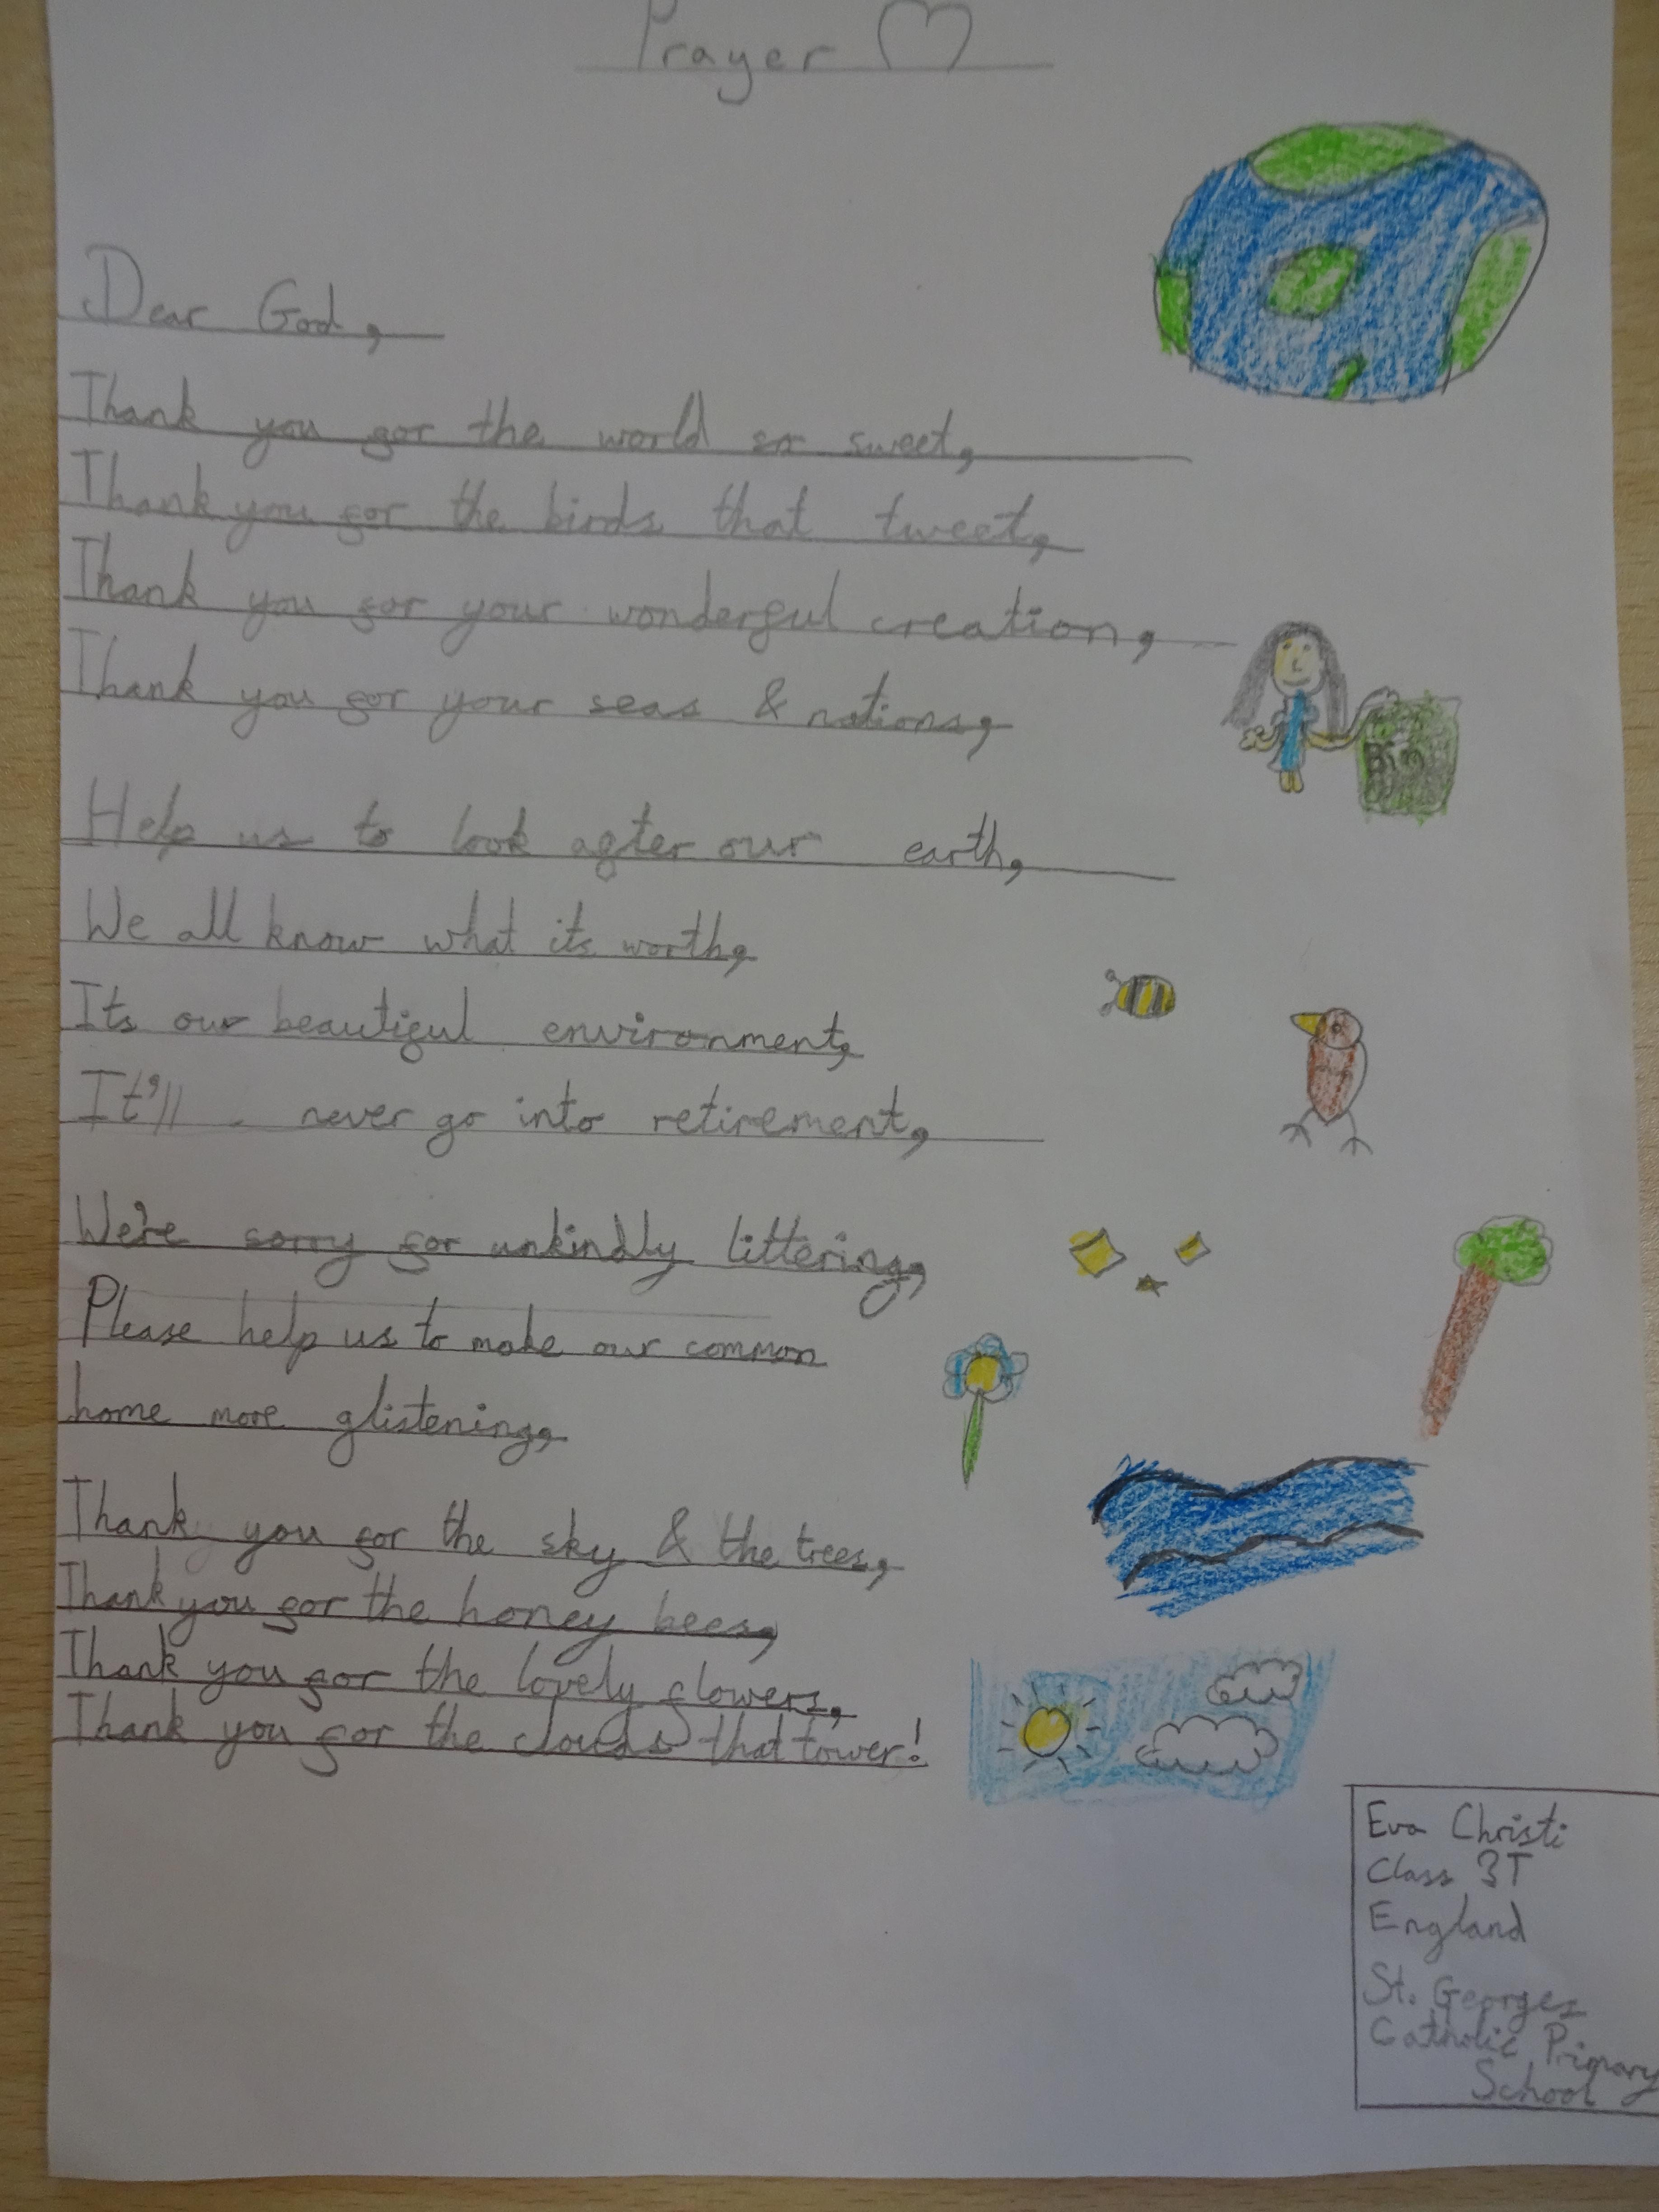 Prayer
Dear God,
Thank you for the world so sweet,
Thank you for the birds that tweet,
Thank you for your wonderful creation,
Thank you for your seas & nations,
Bin
Help us to look after our earth,
We all know what its worth,
Its our beautiful environment,
It'll never go into retirement,
We're sorry for unkindly littering,
Please help us to make our common
home more glistening,
Thank you for the sky & the trees,
Thank you for the honey bees,
Thank you for the lovely flowers,
Thank you for the clouds that tower!
Eva Christi
Class 3T
England
St. Georges
Catholic Primary
School